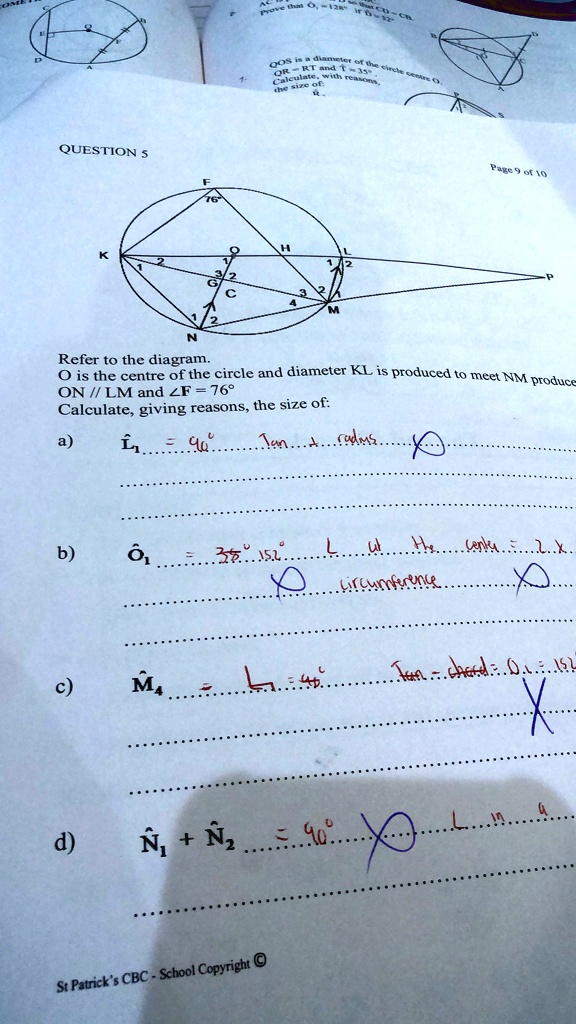 Prove that Ô₁ = 128° if D̂ = 52°
QOS is a diameter of the circle centre O.
QR = RT and T̂ = 35°.
Calculate, with reasons,
the size of:
QUESTION 5
Page 9 of 10
F
76°
K 2 1 O 1 H L 1 2 P
3 2 G C 3 4 2 1 M
1 2 N
Refer to the diagram.
O is the centre of the circle and diameter KL is produced to meet NM produce
ON // LM and ∠F = 76°
Calculate, giving reasons, the size of:
a) L̂₁ = 90° Tan ⊥ radius
b) Ô₁ = 152° L at the center = 2 x
circumference
c) M̂₄ = L₁ = 90° Tan - chord = O₁ = 152
d) N̂₁ + N̂₂ = 90° L in a
St Patrick's CBC - School Copyright ©